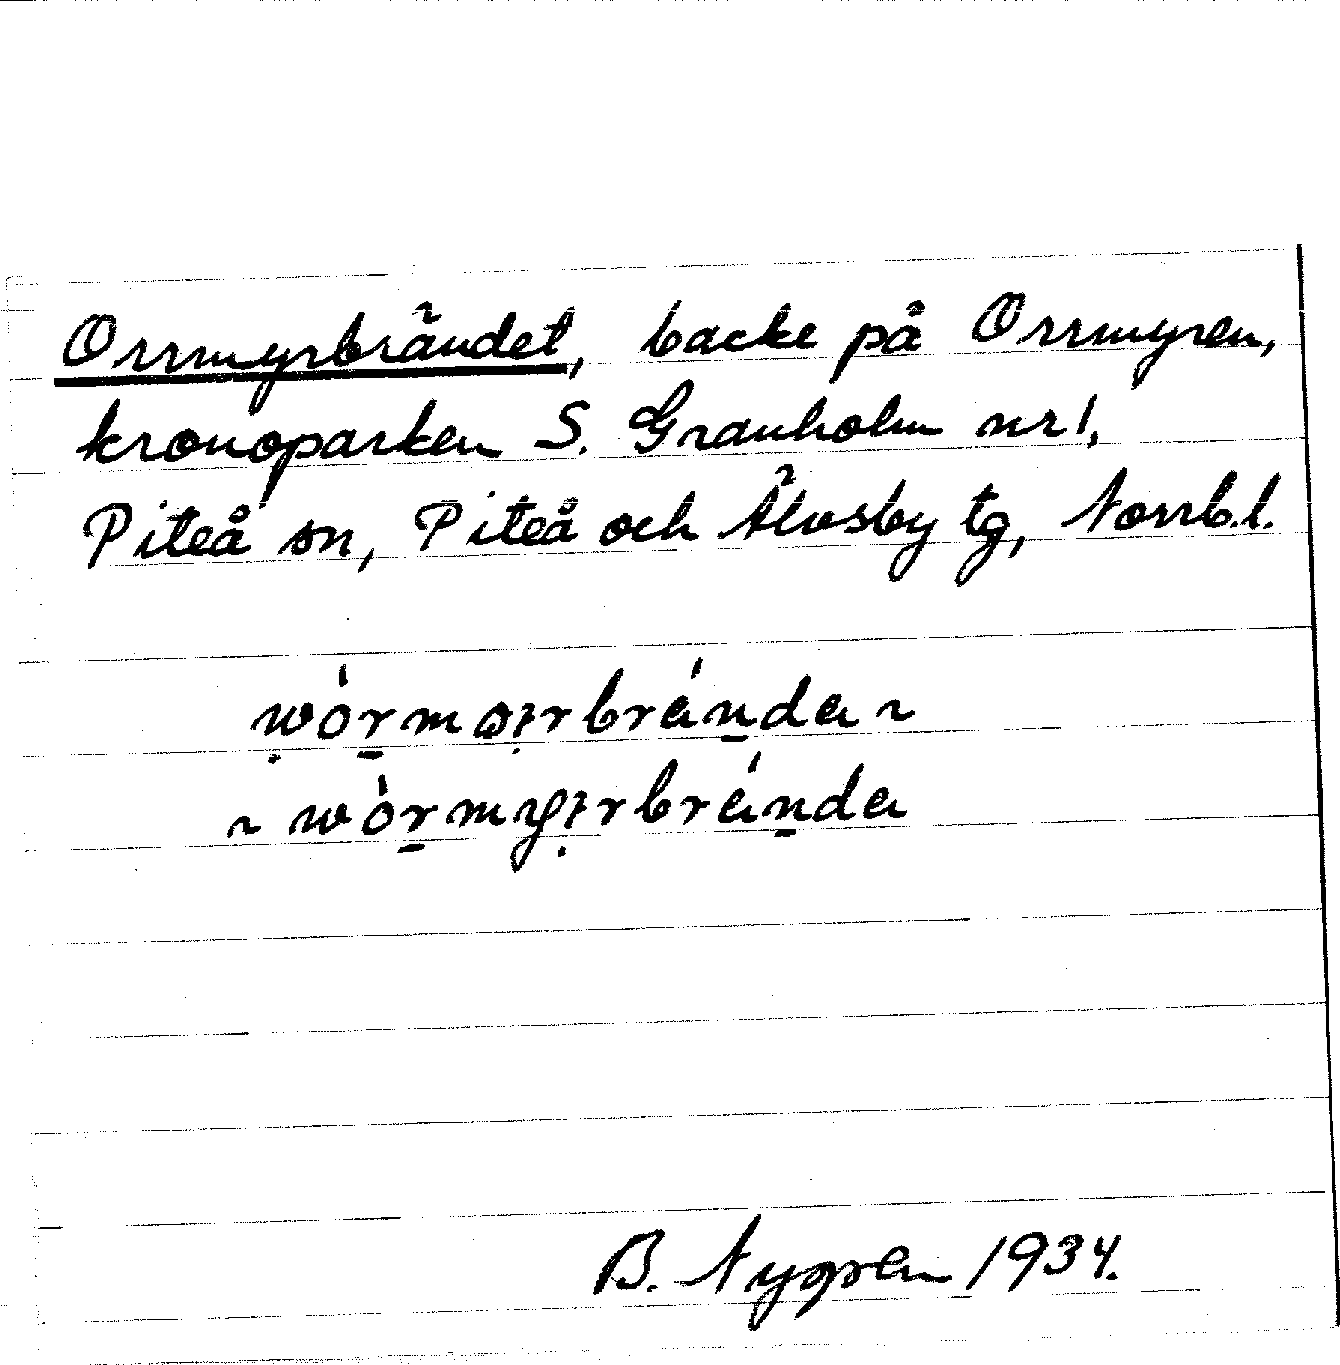 Orrmyrbrändet, backe på Orrmyren,
kronoparken S. Granholm nr 1,
Piteå sn, Piteå och Älvsby tg, Norrb. l.
B. Nygren 1934.